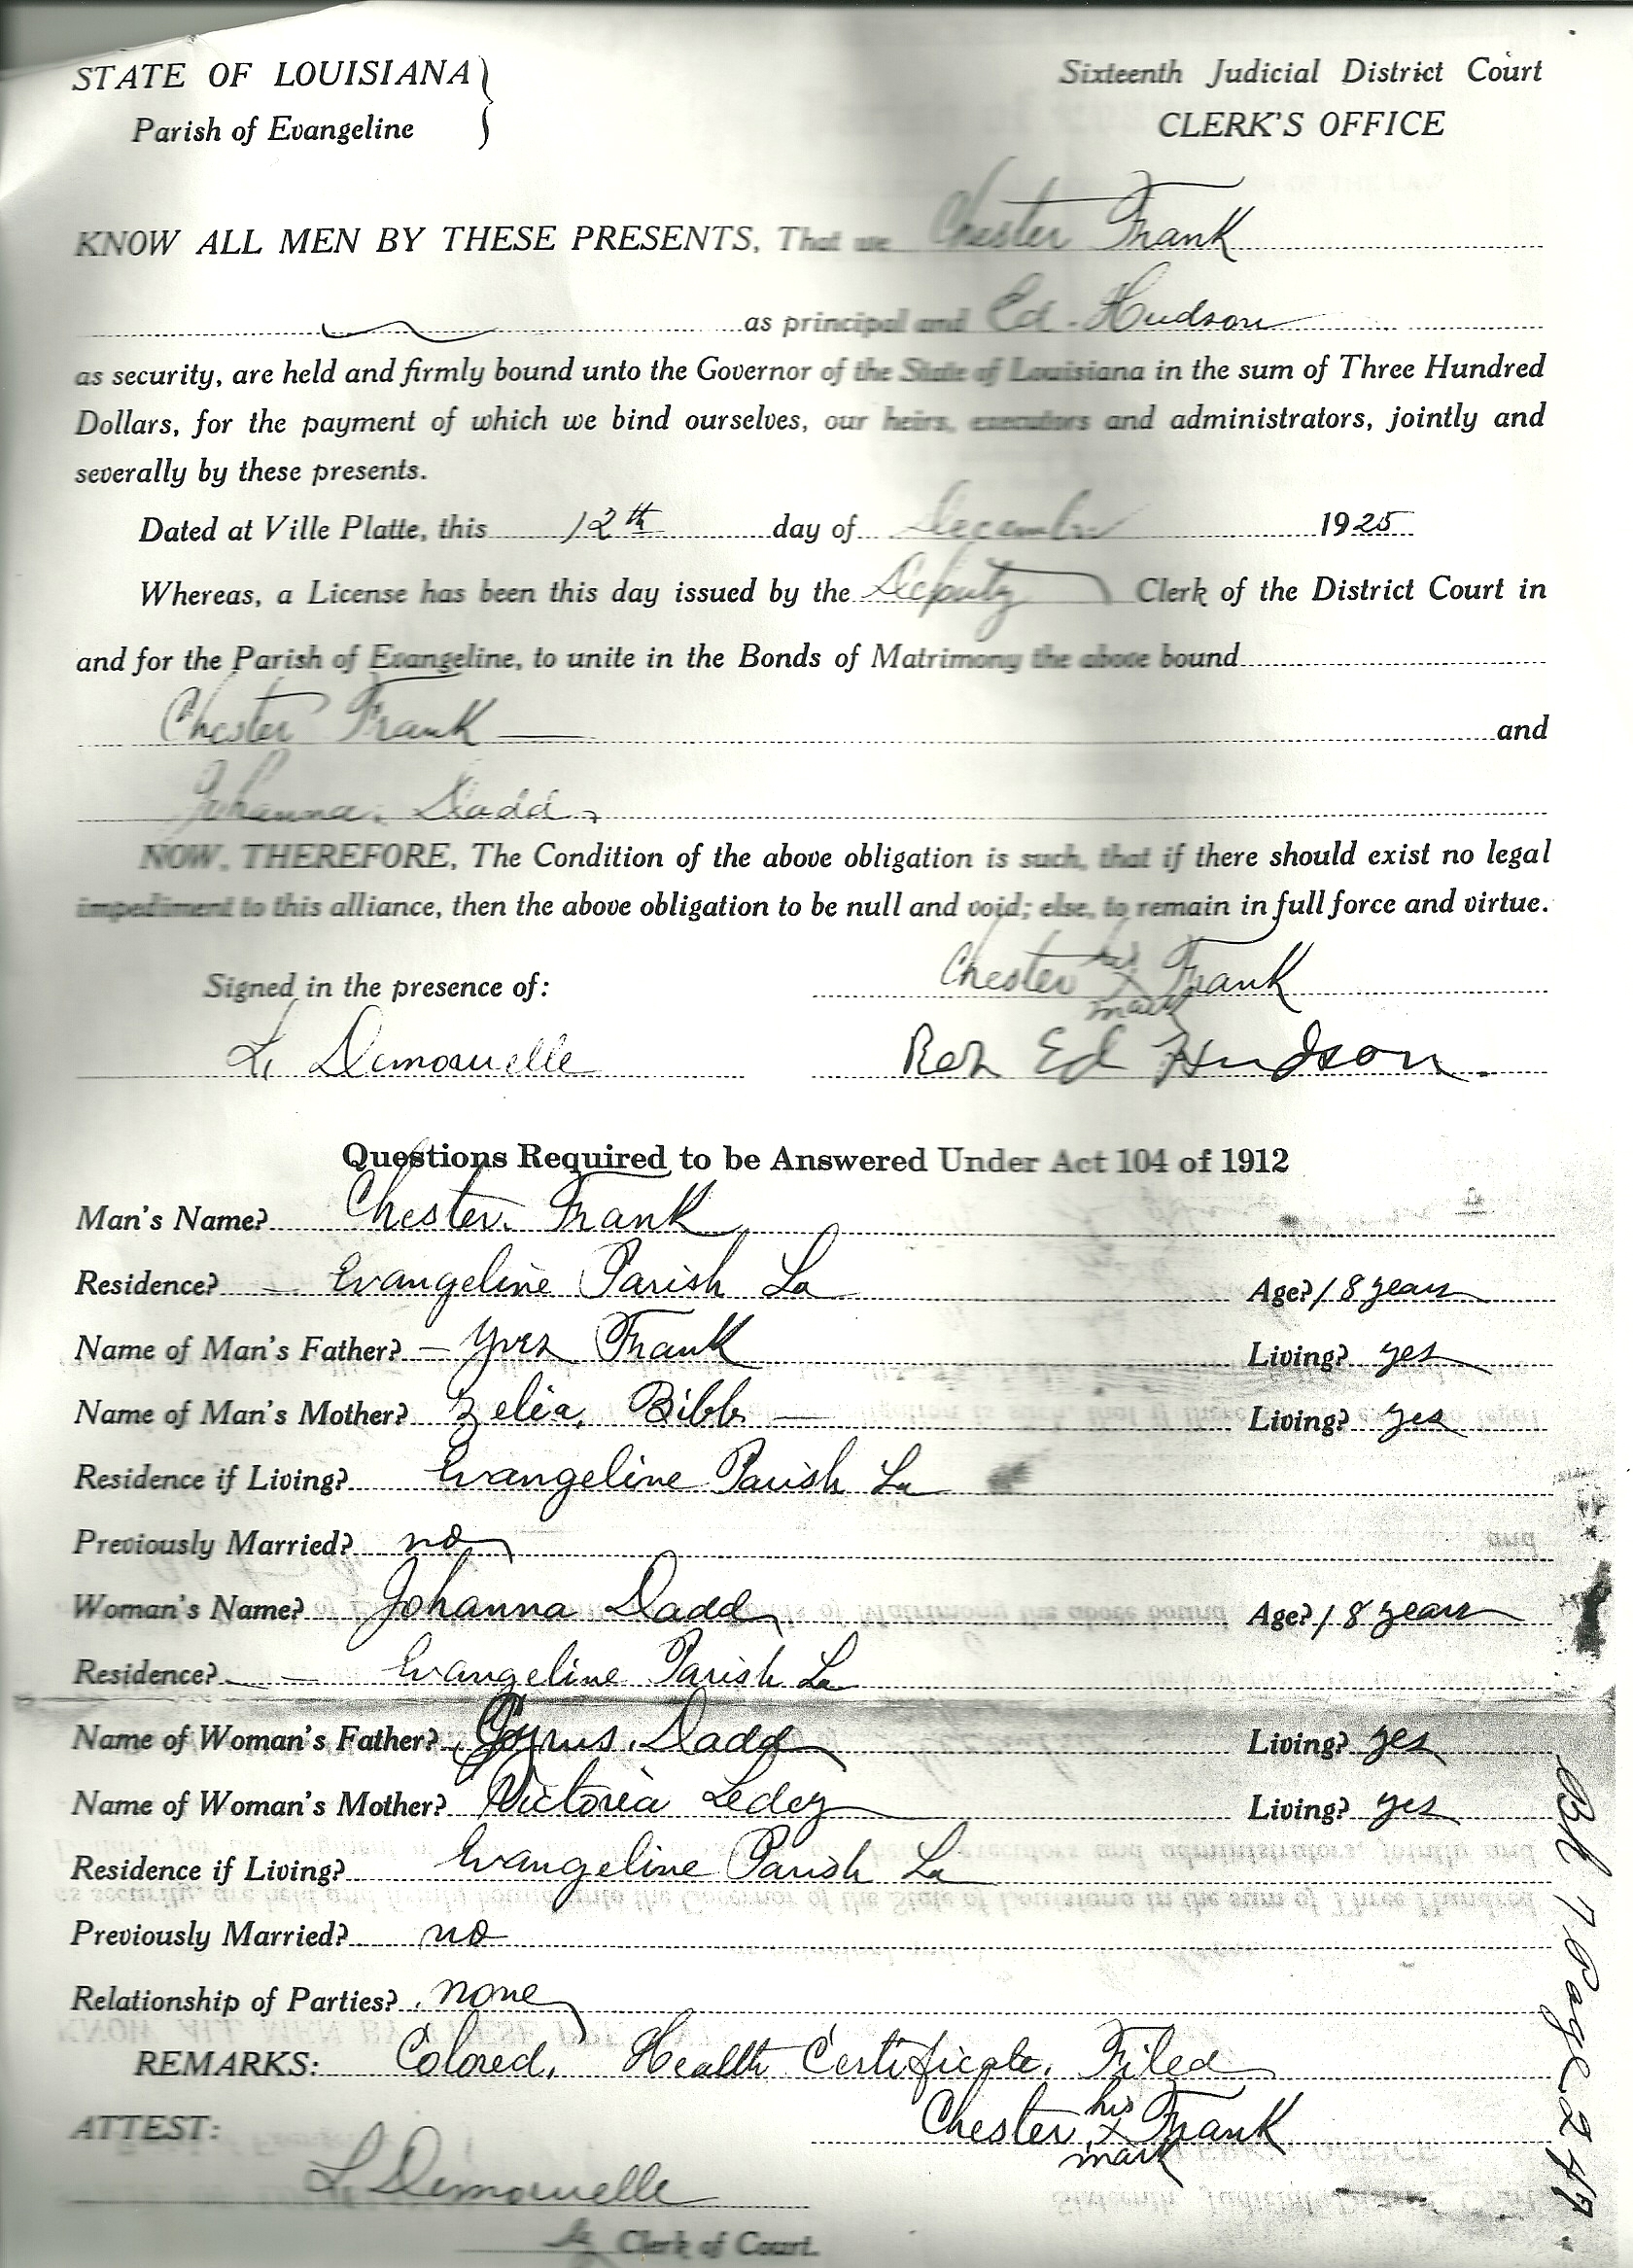 STATE OF LOUISIANA }
Parish of Evangeline
Sixteenth Judicial District Court
CLERK'S OFFICE
KNOW ALL MEN BY THESE PRESENTS, That we Chester Frank
as principal and Ed. Hudson
as security, are held and firmly bound unto the Governor of the State of Louisiana in the sum of Three Hundred
Dollars, for the payment of which we bind ourselves, our heirs, executors and administrators, jointly and
severally by these presents.
Dated at Ville Platte, this 12th day of December 1925
Whereas, a License has been this day issued by the Deputy Clerk of the District Court in
and for the Parish of Evangeline, to unite in the Bonds of Matrimony the above bound
Chester Frank and
Johanna Dadd
NOW, THEREFORE, The Condition of the above obligation is such, that if there should exist no legal
impediment to this alliance, then the above obligation to be null and void; else, to remain in full force and virtue.
Signed in the presence of:
Chester his x mark Frank
L. Demouelle
Rev Ed Hudson.
Questions Required to be Answered Under Act 104 of 1912
Man's Name? Chester Frank
Residence? Evangeline Parish La Age? 18 years
Name of Man's Father? Yves Frank Living? yes
Name of Man's Mother? Zelia Bibb Living? yes
Residence if Living? Evangeline Parish La
Previously Married? no
Woman's Name? Johanna Dadd Age? 18 years
Residence? Evangeline Parish La
Name of Woman's Father? Cyrus Dadd Living? yes
Name of Woman's Mother? Victoria Ledey Living? yes
Residence if Living? Evangeline Parish La
Previously Married? no
Relationship of Parties? none
REMARKS: Colored. Health Certificate Filed
Chester his x mark Frank
ATTEST:
L. Demouelle
Dy Clerk of Court.
Bk 7 Page 249